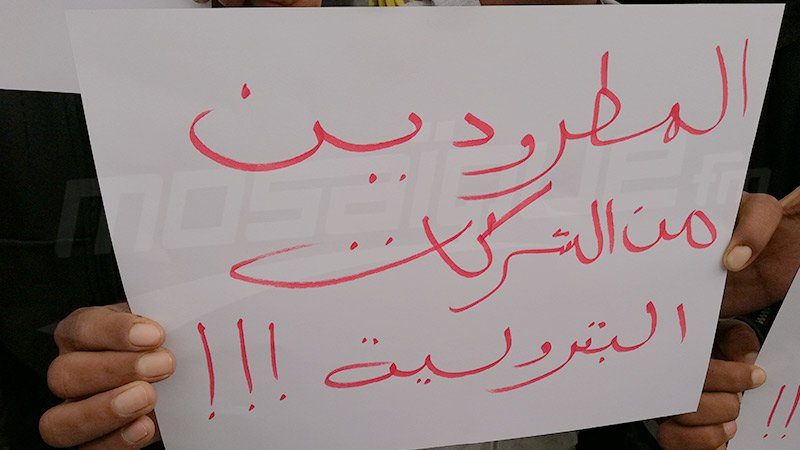 المطرودين
من الشركات
البترولية !!!
mosaique fm
!!